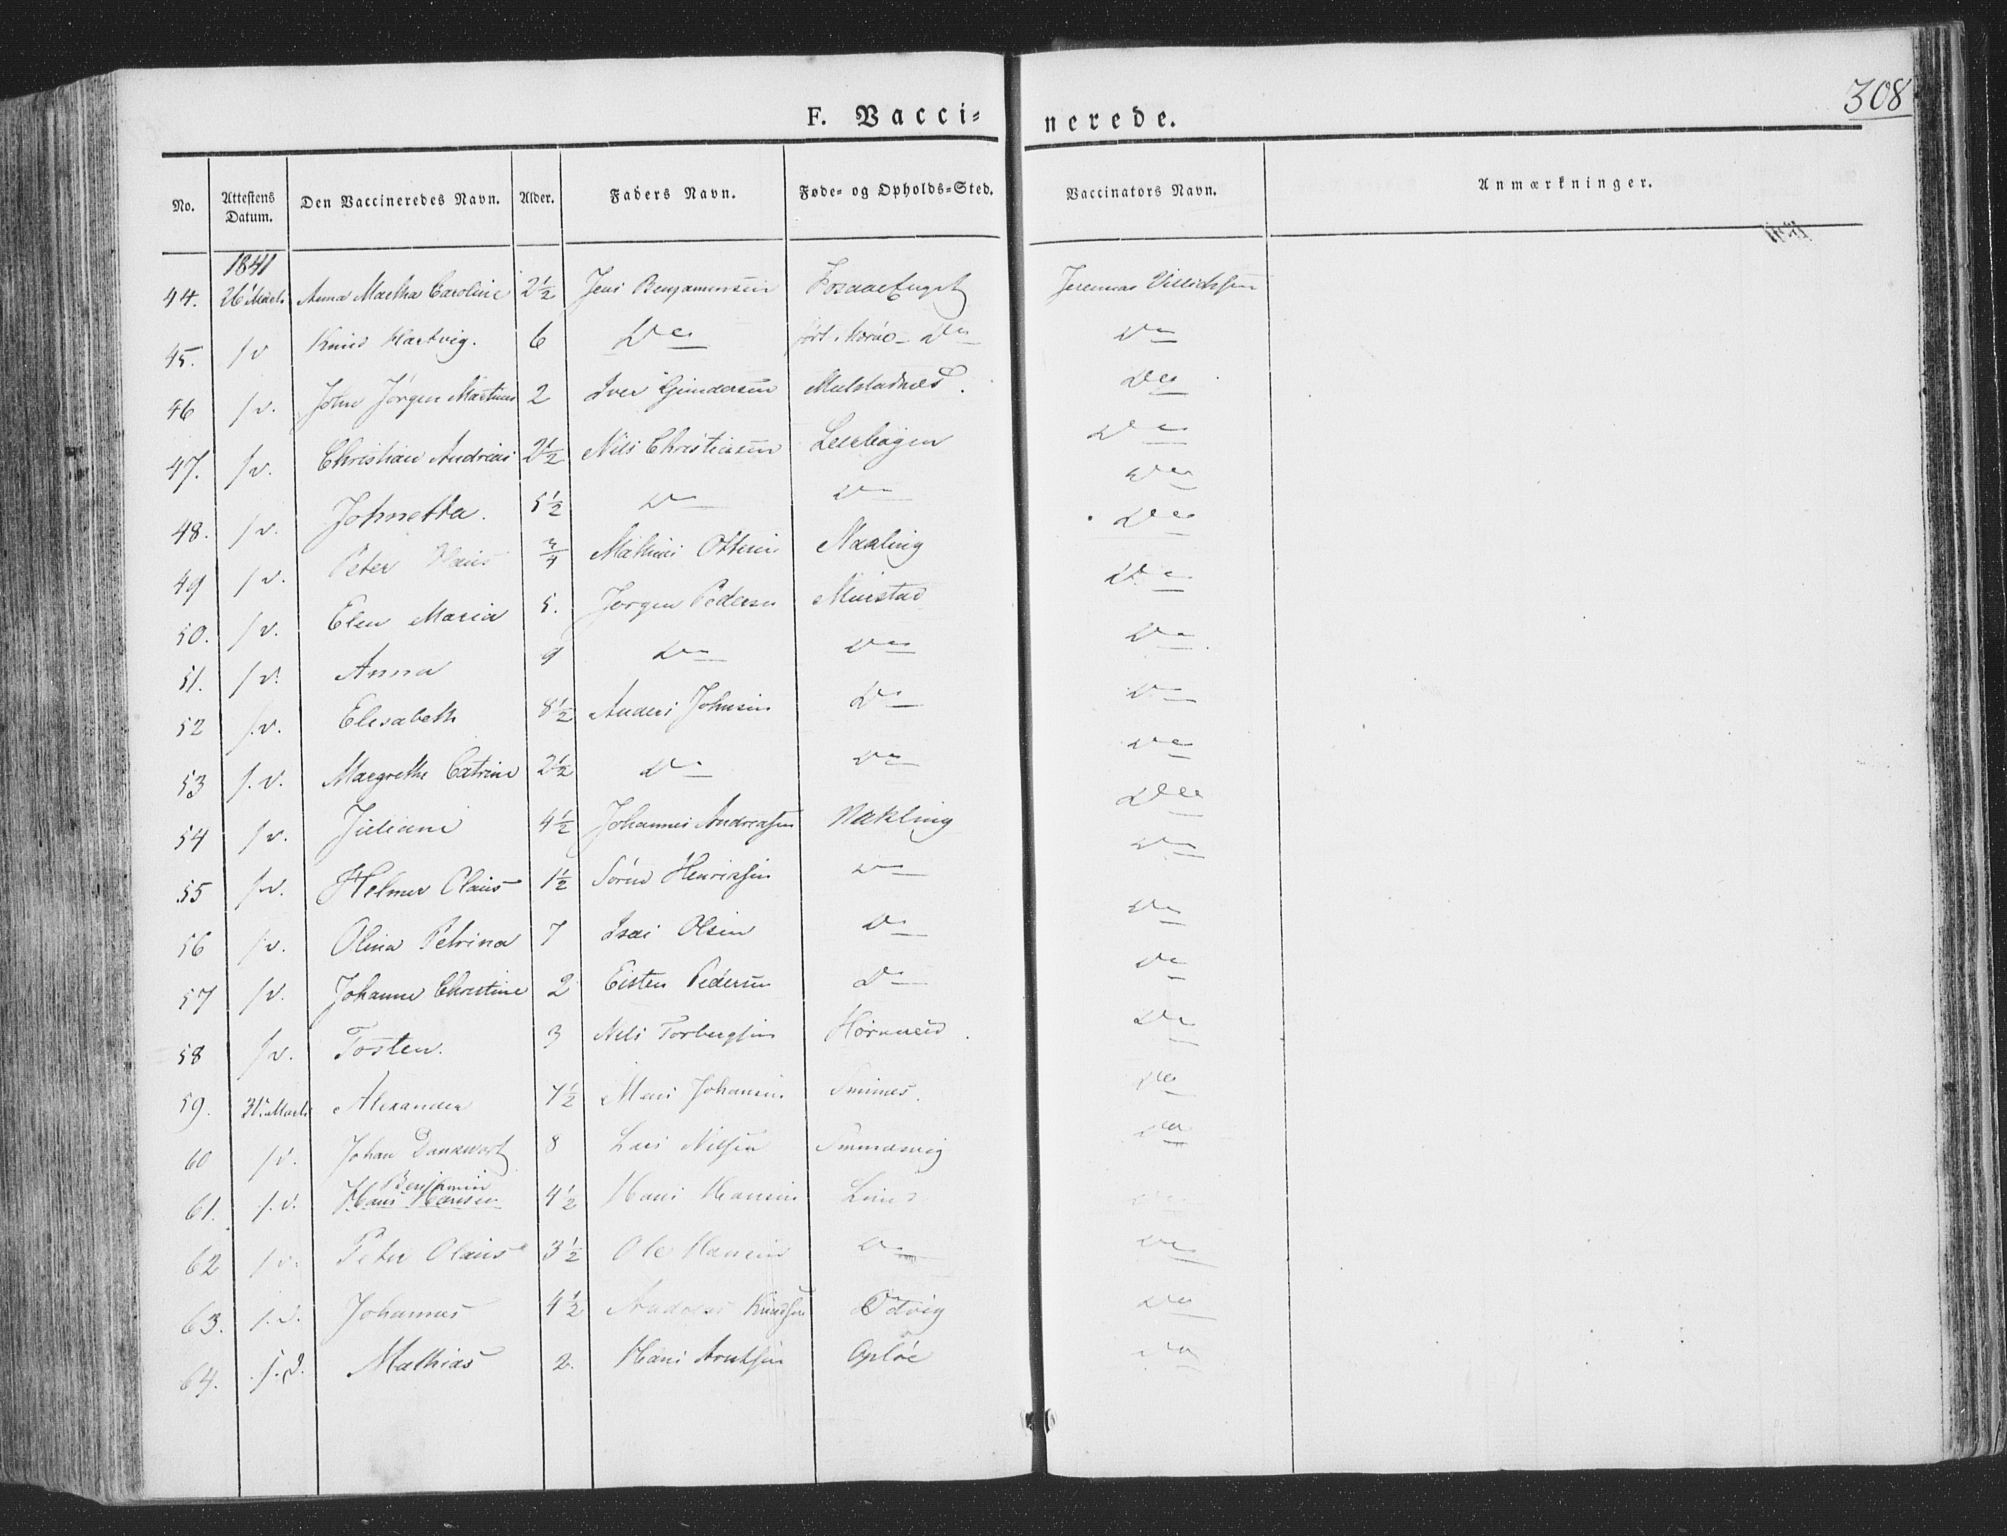 308
F. Vacci- nerede.
No. Attestens Datum. Den Vaccineredes Navn. Alder. Faders Navn. Føde- og Opholds-Sted. Vaccinators Navn. Anmærkninger.
1841
44. 26 Marts Anna Martha Caroline 2½ Jens Benjaminsen Jeremias
45. s. d. Hartvig. 6 Do Do Do
46 s. d. John Jørgen Martinus 2 Iver Do
47. s. d. Christian Andreas 2½ Nils Christiansen Do
48. s. d. Johnetta. 5½ Do Do Do
49 s. d. Peter Hans ¾ Mathias Ottesen Do
50. s. d. Elen Maria 5. Jørgen Pedersen Do
51. s. d. Anna 9 Do Do Do
52 s. d. Elisabeth 8½ Anders Johnsen Do Do
53 s. d. Margrethe Catrine 2½ Do Do Do
54 s. d. Juliane 4½ Johannes Andreassen Nakling Do
55 s. d. Helmer Olaus 1½ Søren Henriksen Do Do
56 s. d. Olina Petrina 7 Isac Olsen Do Do
57 s. d. Johanne Christine 2 Eisten Pedersen Do Do
58 s. d. Tosten. 3 Nils Torbergsen Do
59. 31 Marts Alexander 7½ Johansen Do
60 s. d. Johan Dankwart 8 Lars Nilsen Do
Benjamin
61. s. d. Hans Hansen 4½ Hans Hansen Lund
62 s. d. Peter Olaus 3½ Ole Hansen Do Do
63. s. d. Johannes 4½ Andreas Knudsen Odvig Do
64. s. d. Mathias 2. Hans Arntsen Opløe Do